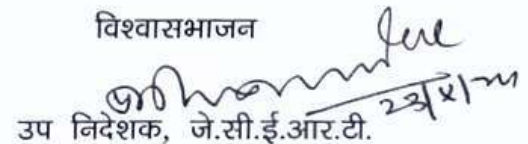 विश्वासभाजन
उप निदेशक, जे.सी.ई.आर.टी.